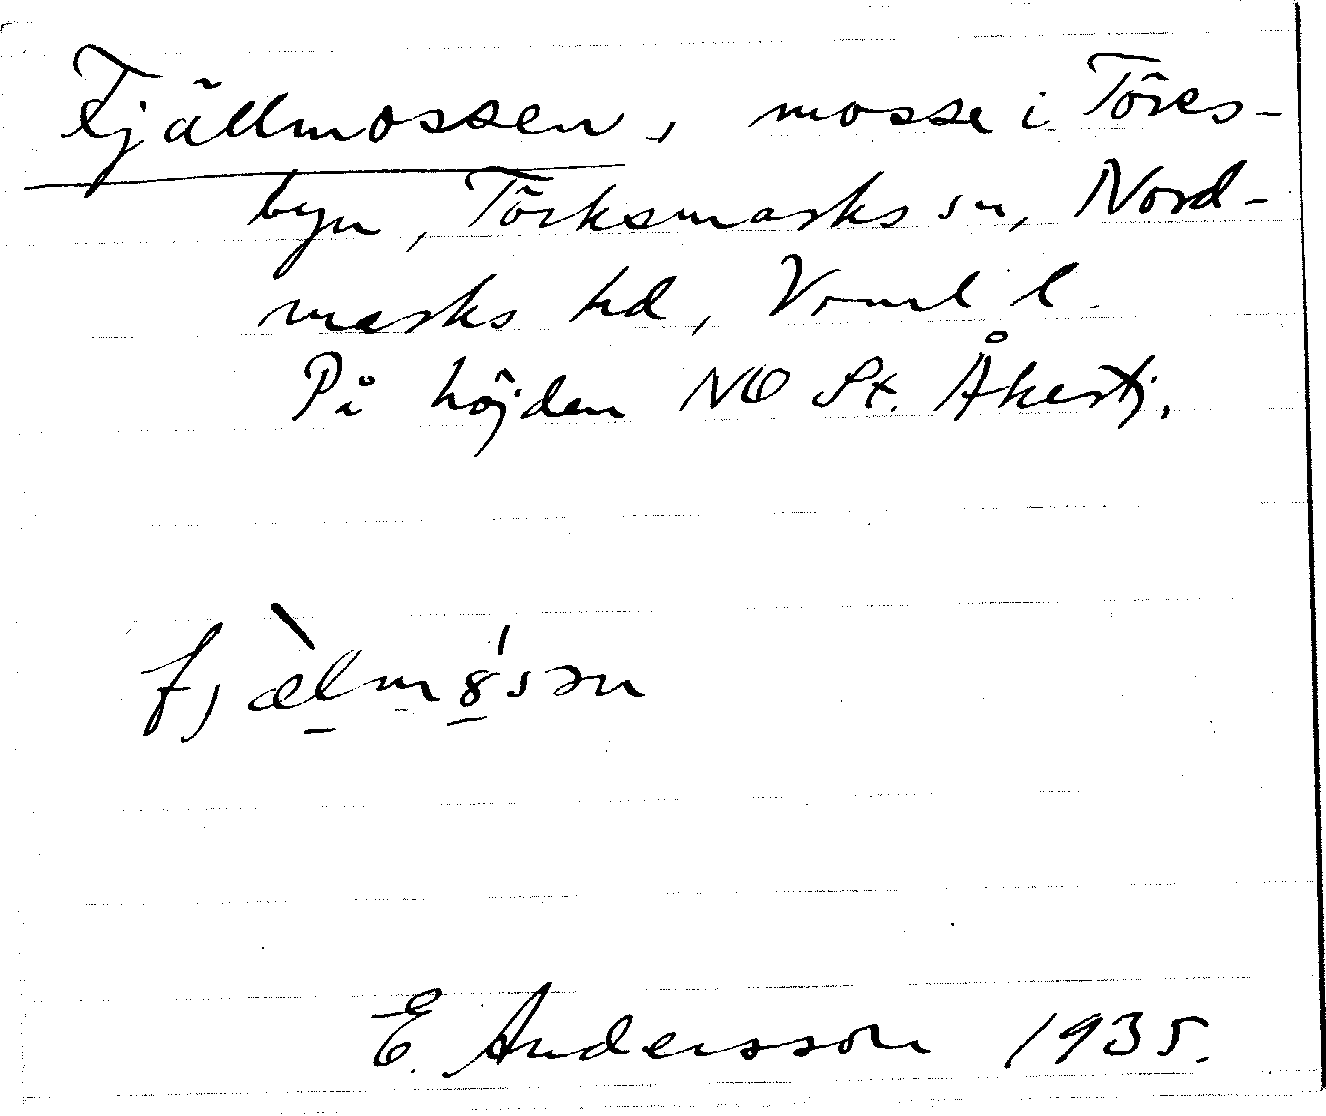 Fjällmossen, mosse i Töres-
byn, Töcksmarks sn, Nord-
marks hd, Vrml l.
På höjden NO St. Åkertj.
fjæ̀lmȣ́sən
E. Andersson 1935.